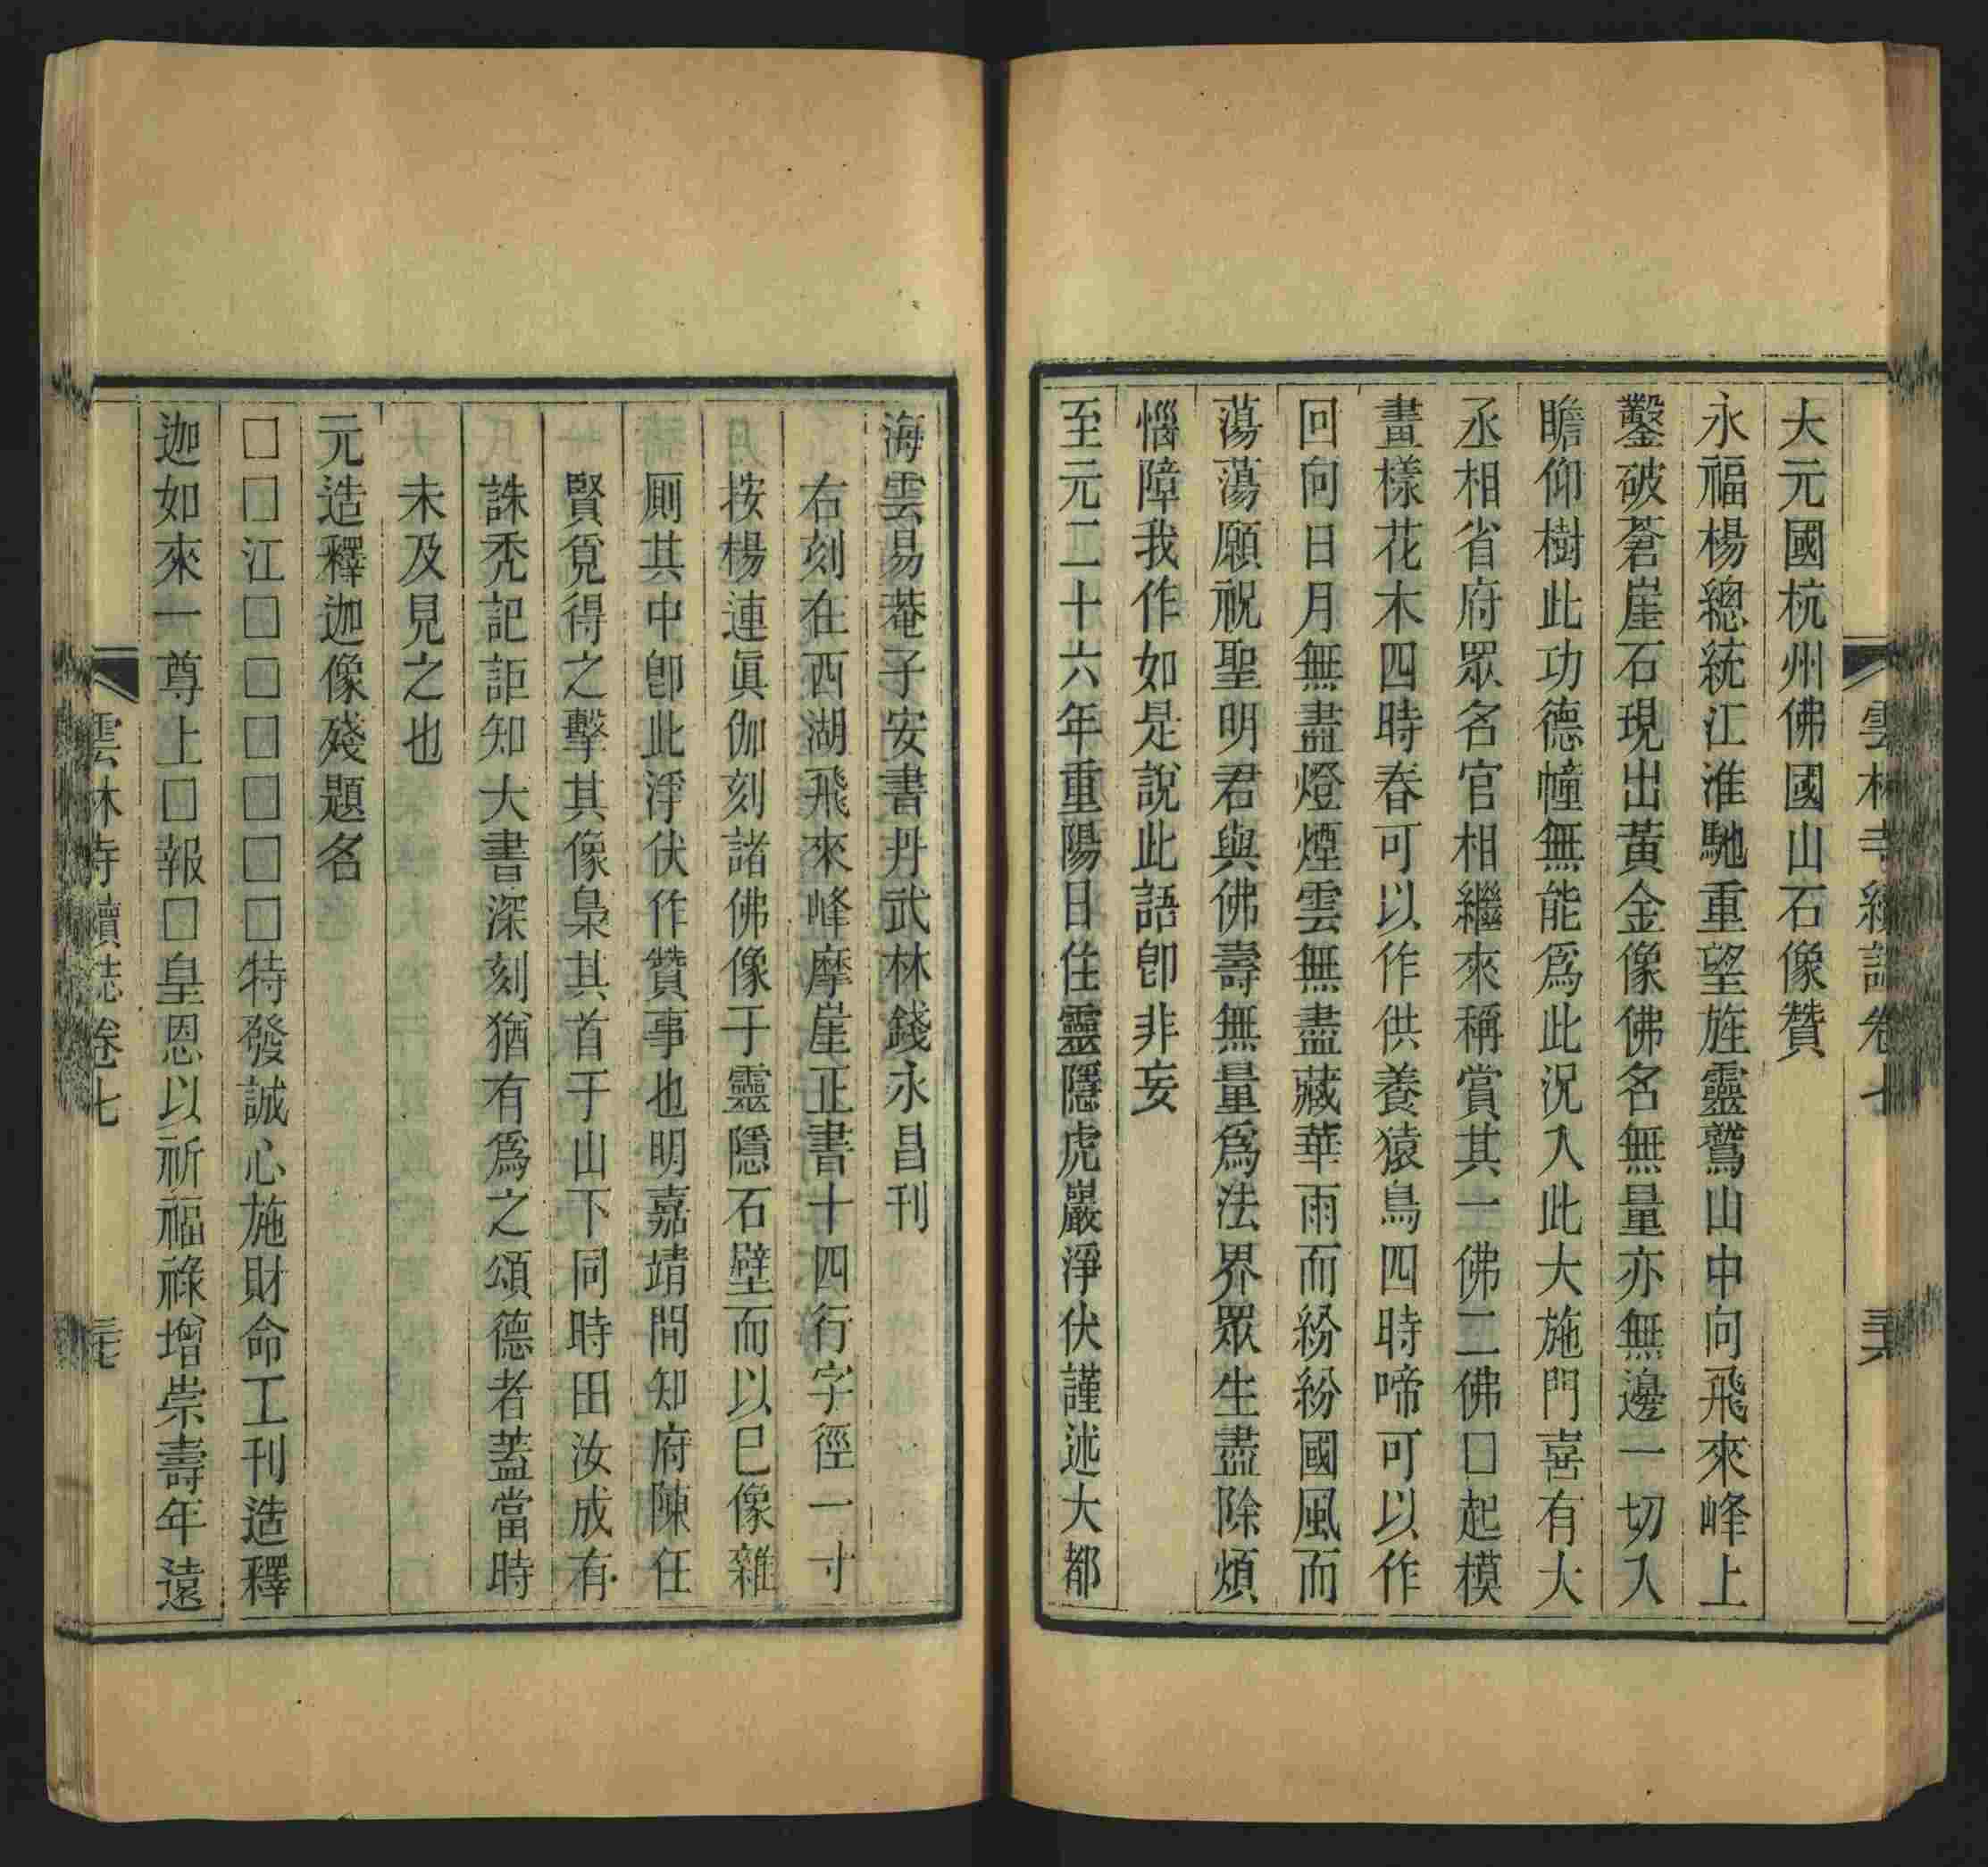 雲林寺續誌卷七
三六
大元國杭州佛國山石像贊
永福楊總統江淮馳重望旌靈鷲山中向飛來峰上
鑿破蒼崖石現出黃金像佛名無量亦無邊一切入
瞻仰樹此功德幢無能爲此況入此大施門喜有大
丞相省府眾名官相繼來稱賞其一佛二佛□起模
畫樣花木四時春可以作供養猿鳥四時啼可以作
回向日月無盡燈煙雲無盡藏華雨而紛紛國風而
蕩蕩願祝聖明君與佛壽無量爲法界眾生盡除煩
惱障我作如是說此語卽非妄
至元二十六年重陽日住靈隱虎巖淨伏謹述大都
海雲易菴子安書丹武林錢永昌刊
右刻在西湖飛來峰摩崖正書十四行字徑一寸
按楊連眞伽刻諸佛像于靈隱石壁而以巳像雜
厠其中卽此淨伏作贊事也明嘉靖間知府陳仕
賢覓得之擊其像梟其首于山下同時田汝成有
誅禿記詎知大書深刻猶有爲之頌德者蓋當時
未及見之也
元造釋迦像殘題名
□□江□□□□□□特發誠心施財命工刊造釋
迦如來一尊上□報□皇恩以祈福祿增崇壽年遠
雲林寺續誌卷七
三七